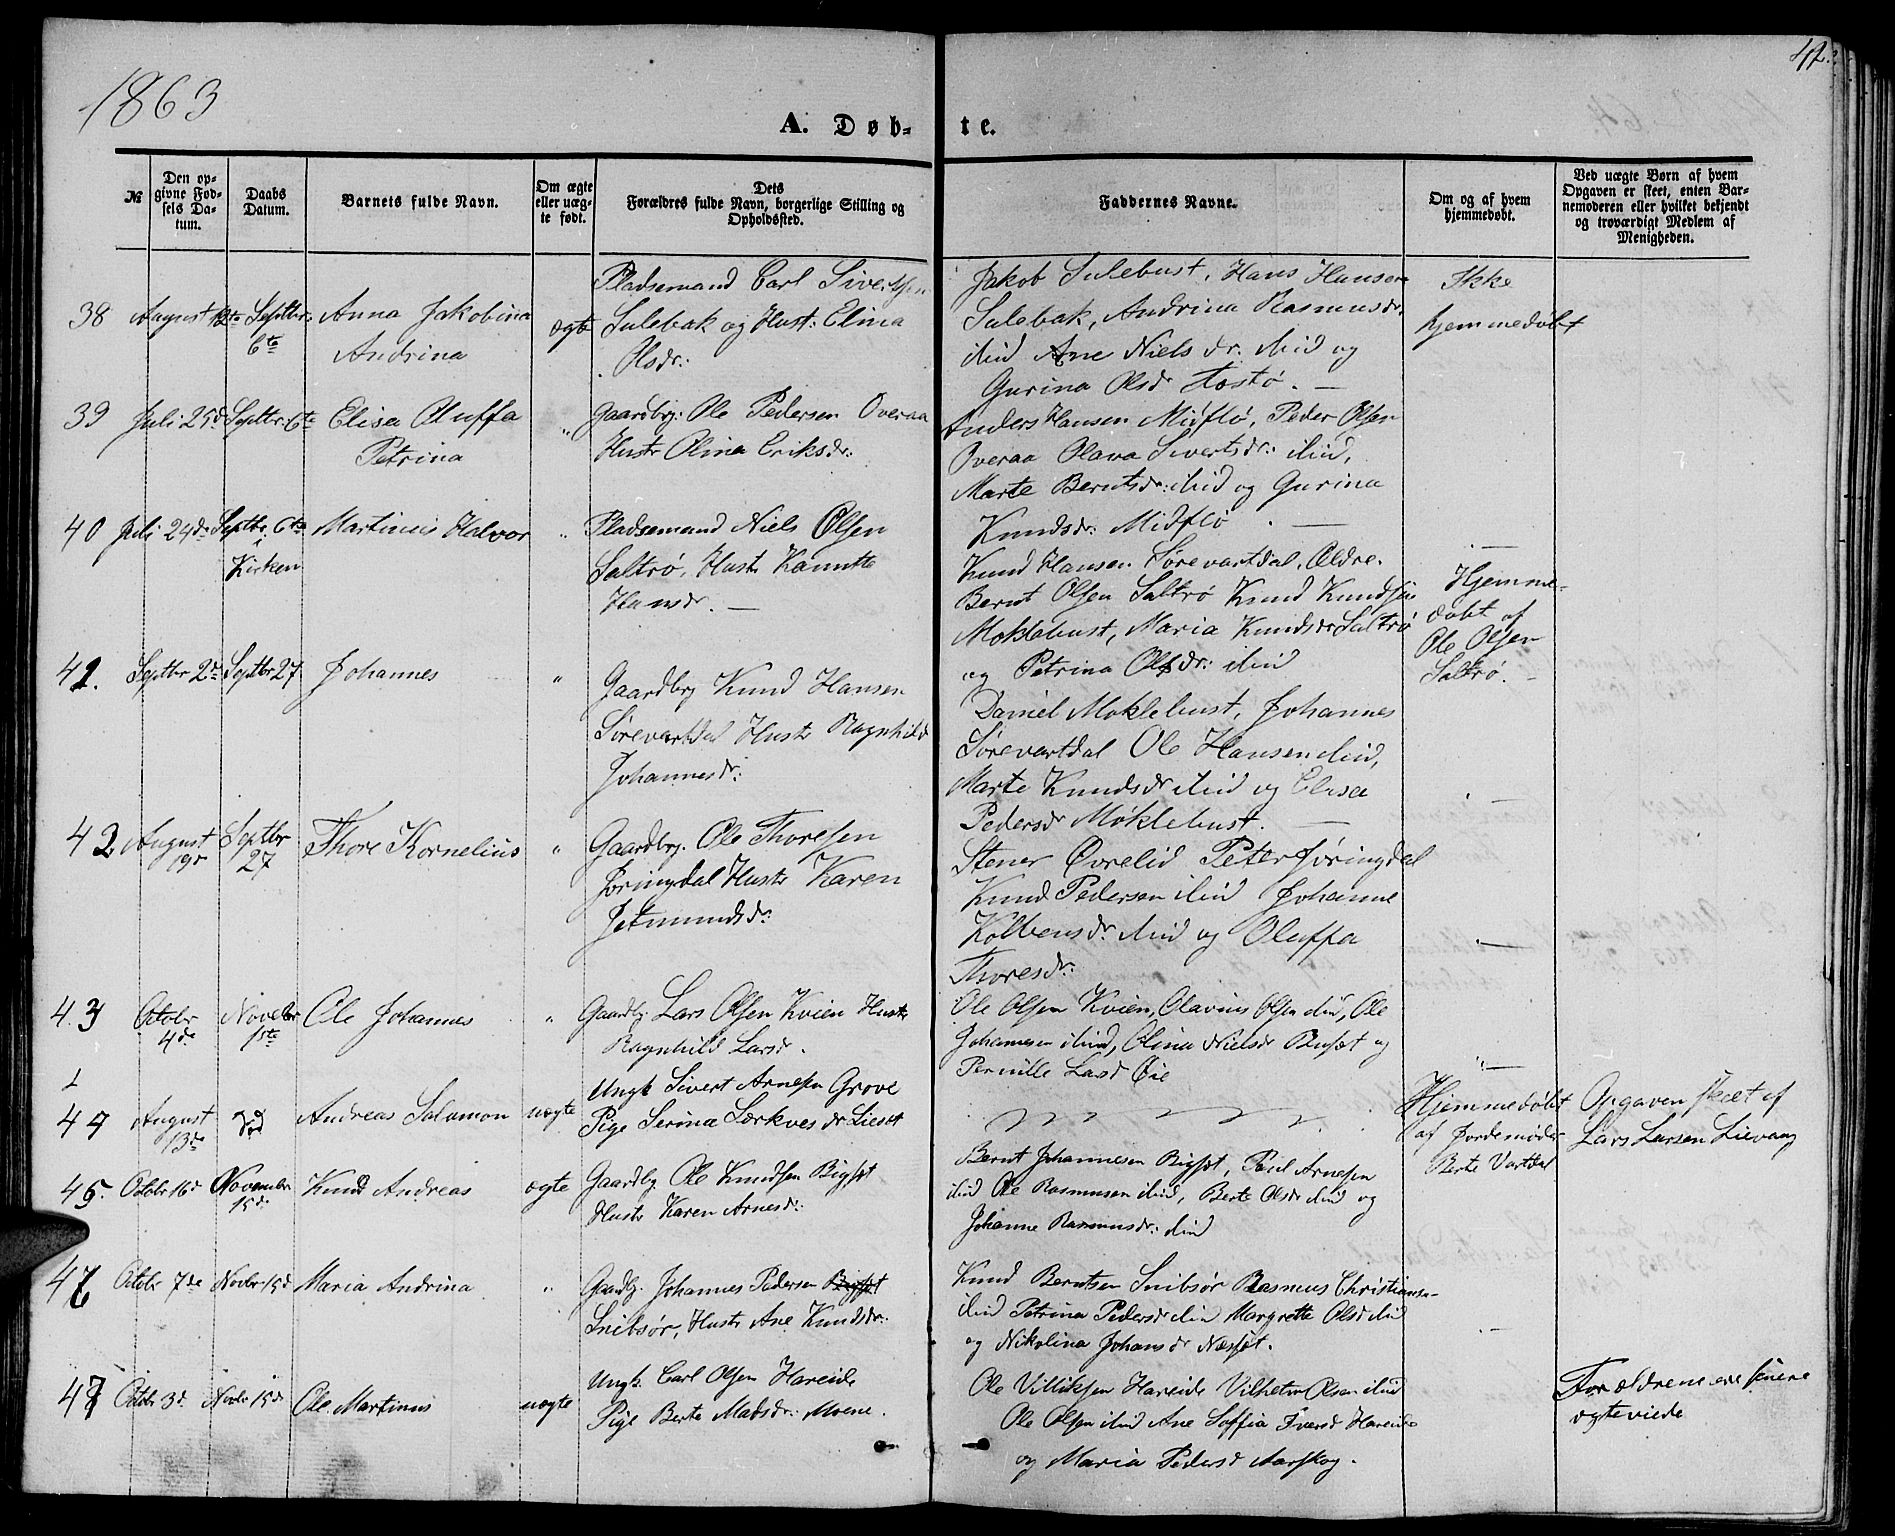 1863
42.
A. Døb-
te.
№
Den op-
givne Fød-
sels Da-
tum.
Daabs
Datum.
Barnets fulde Navn.
Om ægte
eller uæg-
te født.
Dets
Forældres fulde Navn, borgerlige Stilling og
Opholdssted.
Faddernes Navne.
Om og af hvem
hjemmedøbt.
Ved uægte Børn af hvem
Opgaven er skeet, enten Bar-
nemoderen eller hvilket bekjendt
og troværdigt Medlem af
Menigheden.
38 August 12te Septbr
6te
Anna Jakobina
Andrina
ægte
Pladsemand Carl Sivertsen
Sulebak og Hust: Elina
Olsdr:
Jakob Sulebust, Hans Hansen
Sulebak, Andrina Rasmusdr.
ibid Ane Nielsdr. ibid og
Gurina Olsdr Tostø. —
Ikke
hjemmedøbt
39 Juli 25d Septbr. 6te
Elisa Oluffa
Petrina
"
Gaardbr: Ole Pedersen Overaa
Hustr Olina Eriksdr:
Anders Hansen Midflø, Peder Olsen
Overaa Olava Sivertsdr: ibid,
Marte Berntsdr: ibid og Gurina
Knudsdr: Midflø. —
40 Juli 24de Septbr. 6te
i
Kirken
Martinus Halvor
"
Pladsemand Niels Olsen
Saltrø, Hustr Kanutte
Hansdr. —
Knud Hansen Sørevartdal, Ældre.
Bernt Olsen Saltrø Knud Knudsen
Moklebust, Maria Knudsdr Saltrø
og Petrina Olsdr: ibid
Hjemme-
døbt af
Ole Olsen
Saltrø. -
41. Septbr 2d Septbr 27
Johannes
"
Gaardbrg Knud Hansen
Sørevartdal Hustr Ragnhild
Johannesdr:
Daniel Moklebust, Johannes
Sørevartdal Ole Hansen ibid,
Marte Knudsdr ibid og Elisa
Pedersdr Møklebust. —
42 August
19de
Septbr
27
Thore Kornelius
"
Gaardbrg. Ole Thoresen
Jøringdal Hustr Karen
Jetmundsdr:
Stener Øvrelid Peter Jøringdal
Knud Pedersen ibid Johanne
Kolbensdr. ibid og Oluffa
Thoresdr:
43 Octobr
4de
Novebr
1ste
Ole Johannes
"
Gaardbg Lars Olsen Kvien Hustr
Ragnhild Larsdr.
Ole Olsen Kvien, Olavius Olsen ibid, Ole
Johannesen ibid, Olina Nielsdr og
Pernille Larsd Øie
44 August
13de
Andreas Salamon
uægte
Ungk Sivert Arnesen Grove
Pige Serina Lærkvesdr Lieset
Hjemmedøbt
af Jordemoder
Berte Vartdal
Opgaven skeet af
Lars Larsen Lievaag
45. Octobr 16d November
15de
Knud Andreas
ægte
Gaardbg Ole Knudsen Bigset
Hustr Karen Arnesdr:
Bernt Johannesen Bigset, Paul Arnesen
ibid Ole Rasmusen ibid, Berte Olsdr ibid og
Johanne Rasmusdr: ibid
46 Octobr 7de Novbr 15d
Maria Andrina
"
Gaardbg. Johannes Pedersen Bigset
Snibsør, Hustr Ane Knudsdr:
Knud Berntsen Snibsør Rasmus Christiansen
ibid Petrina Pedersdr ibid Margrette Olsd ibid
og Nikolina Johansdr Næsset.
47 Octobr 3d Novbr 15d
Ole Martinus
uægte
Ungk. Carl Olsen Hareide
Pige Berte Madsdr: Moene.
Ole Villiksen Hareide Vilhelm Olsen ibid
Ole Olsen ibid Ane Soffia Iversd Hareide
og Maria Pedersd Aarskog.
Forældrene ere senere
ægteviede